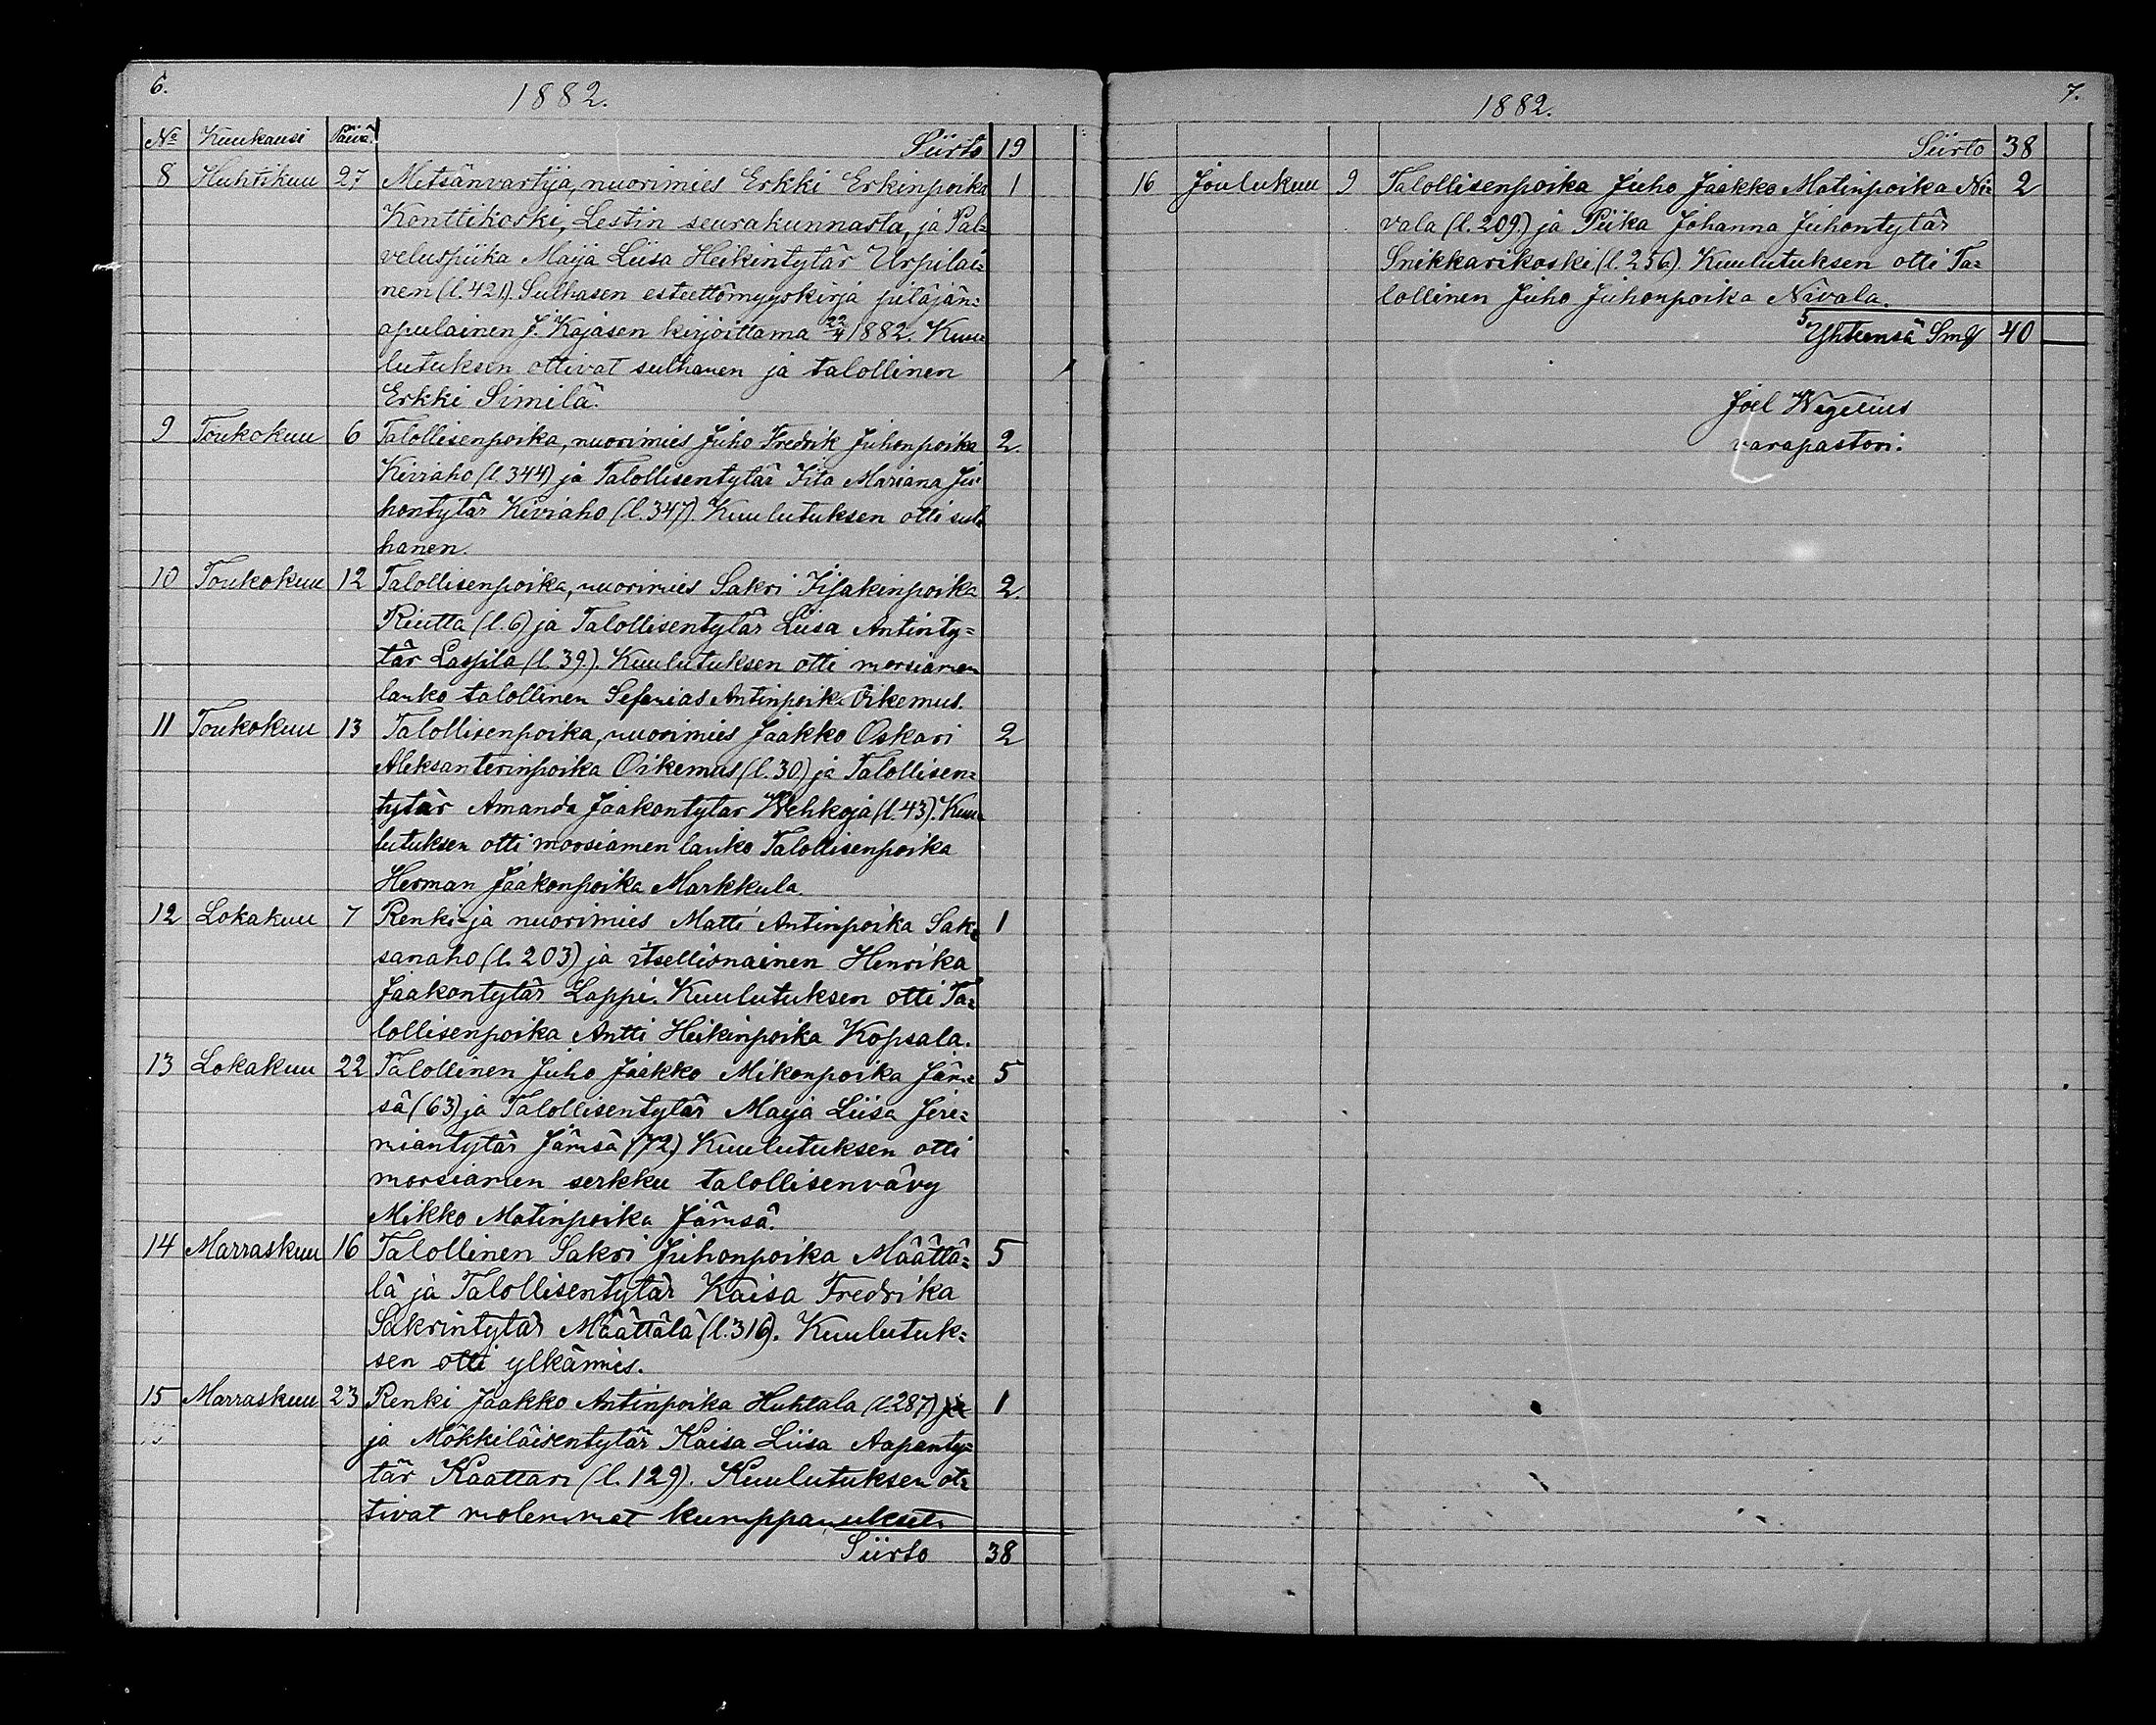 6.
1882.
No Kuukausi Päivä. Siirto 19
8 Huhtikuu 27 Metsänvartija, nuorimies Erkki Erkinpoika 1
Konttikoski, Lestin seurakunnasta, ja Pal=
veluspiika Maija Liisa Heikintytär Urpilai=
nen (l. 421). Sulhasen esteettömyyskirja pitäjän=
apulainen J. Kajasen kirjoittama 22/4 1882. Kuu=
lutuksen ottivat sulhanen ja talollinen
Erkki Similä.
9 Toukokuu 6 Talollisenpoika, nuorimies Juho Fredrik Juhonpoika 2.
Kiviaho (l. 344) ja Talollisentytär Iita Mariana Ju=
hontytär Kiviaho (l. 347). Kuulutuksen otti sul=
hanen.
10 Toukokuu 12 Talollisenpoika, nuorimies Sakri Iisakinpoika 2.
Riutta (l. 6) ja Talollisentytär Liisa Antinty=
tär Laspila (l. 39). Kuulutuksen otti morsiamen
lanko talollinen Sefanias Antinpoika Oikemus.
11 Toukokuu 13 Talollisenpoika, nuorimies Jaakko Oskari 2
Aleksanterinpoika Oikemus (l. 30.) ja Talollisen=
tytär Amanda Jaakontytar Wehkoja (l. 43). Kuu=
lutuksen otti morsiamen lanko Talollisenpoika
Herman Jaakonpoika Markkula.
12 Lokakuu 7 Renki ja nuorimies Matti Antinpoika Sak= 1
sanaho (l. 203) ja itsellisnainen Henrika
Jaakontytär Lappi. Kuulutuksen otti Ta=
lollisenpoika Antti Heikinpoika Kopsala.
13 Lokakuu 22 Talollinen Juho Jaakko Mikonpoika Jäm= 5
sä (63) ja Talollisentytär Maija Liisa Jere=
miantytär Jämsä (72) Kuulutuksen otti
morsiamen serkku talollisenvävy
Mikko Matinpoika Jämsä.
14 Marraskuu 16 Talollinen Sakri Juhonpoika Määttä= 5
lä ja Talollisentytär Kaisa Fredrika
Sakrintytär Määttälä (l. 316). Kuulutuk=
sen otti ylkämies.
15 Marraskuu 23 Renki Jaakko Antinpoika Huhtala (l. 287) ja 1
ja Mökkiläisentytär Kaisa Liisa Aapanty=
tär Kaattari (l. 129). Kuulutuksen ot=
tivat molemmat kumppanukset.
Siirto 38
7.
1882.
Siirto 38
16 Joulukuu 9 Talollisenpoika Juho Jaakko Matinpoika Ni= 2
vala (l. 209.) ja Piika Johanna Juhontytär
Snikkarikoski (l. 256). Kuulutuksen otti Ta=
lollinen Juho Juhonpoika Nivala.
Yhteensä Smk 40 —
Joel Wegelius
varapastori.